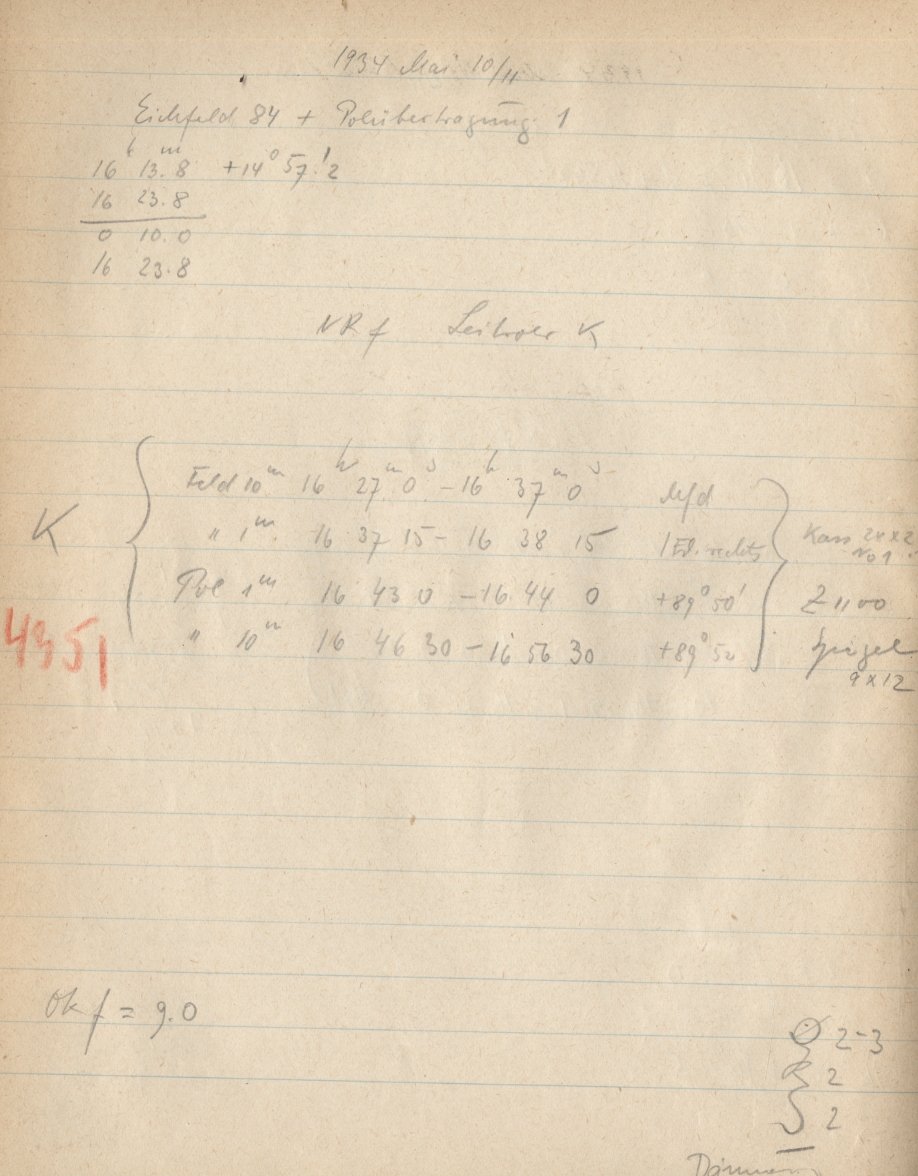 1934 Mai 10/11
Eichfeld 84 + Polübertragung 1
16h 13m.8 +14° 57'.2
16 23.8
0 10.0
16 23.8
NR f Leitrohr K
K
4351
Feld 10m 16h 27m 0s – 16h 37m 0s
" 1m 16 37 15 – 16 38 15 rechts
Pol 1m 16 43 0 – 16 44 0 +89° 50'
" 10m 16 46 30 – 16 56 30 +89° 50
Kass
No 1
Z 1100
Spiegel
9 x 12
Ok f = 9.0
2-3
R 2
S 2